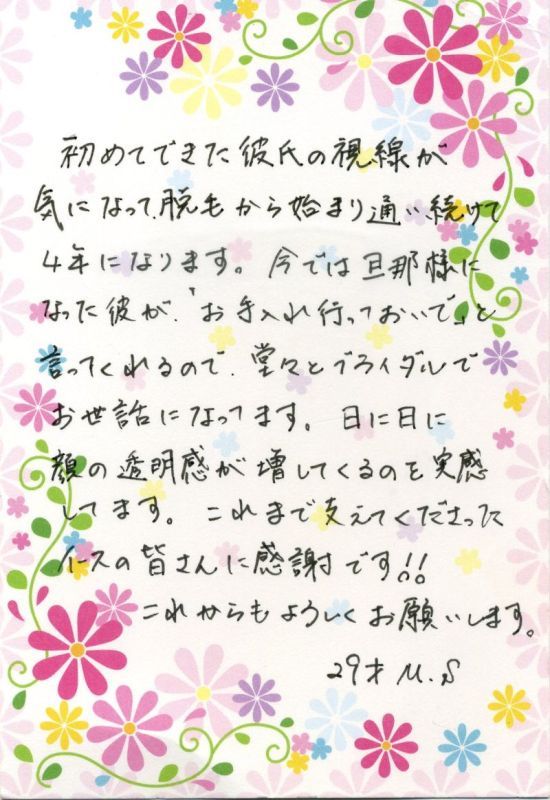 初めてできた彼氏の視線が
気になって、脱毛から始まり通い続けて
4年になります。今では旦那様に
なった彼が、「お手入れ行っておいで」と
言ってくれるので、堂々とブライダルで
お世話になってます。日に日に
顔の透明感が増してくるのを実感
してます。これまで支えてくださった
イースの皆さんに感謝です!!
これからもよろしくお願いします。
29才 M.S